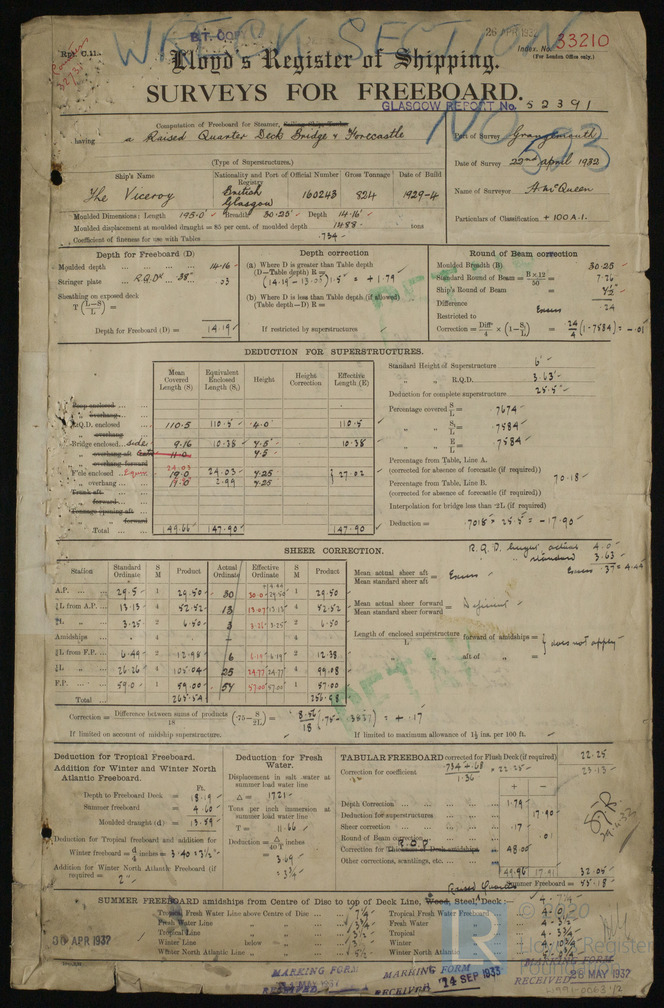 WRECK SECTION
26 APR 1932
Rpt. C.11.
Index. No. 33210
(For London Office only.)
Lloyd's Register of Shipping.
SURVEYS FOR FREEBOARD.
GLASGOW REPORT No. 52391
Computation of Freeboard for Steamer,
having a Raised Quarter Deck Bridge & Forecastle
(Type of Superstructures.)
Port of Survey Grangemouth
Date of Survey 22nd April 1932
Name of Surveyor A. McQueen
Particulars of Classification + 100 A.1.
Ship's Name
Nationality and Port of Registry
Official Number
Gross Tonnage
Date of Build
The Viceroy
British Glasgow
160243
824
1929-4
Moulded Dimensions: Length 195.0 Breadth 30.25 Depth 14.16
Moulded displacement at moulded draught = 85 per cent. of moulded depth 1488 tons
Coefficient of fineness for use with Tables .734
Depth for Freeboard (D)
Moulded depth ... 14.16
Stringer plate ... R.Q.D. .38" .03
Sheathing on exposed deck
T (L-S/L) =
Depth for Freeboard (D) = 14.19
Depth correction
(a) Where D is greater than Table depth
(D—Table depth) R =
(14.19 - 13.00) 1.5 = + 1.79
(b) Where D is less than Table depth (if allowed)
(Table depth—D) R =
If restricted by superstructures
Round of Beam correction
Moulded Breadth (B) 30.25
Standard Round of Beam = B×12/50 = 7.26
Ship's Round of Beam = 7½
Difference .24
Restricted to Excess
Correction = Diff/4 × (1-S/L) = .24/4 (1-.7584) = - .01
DEDUCTION FOR SUPERSTRUCTURES.
Mean Covered Length (S)
Equivalent Enclosed Length (S₁)
Height
Height Correction
Effective Length (E)
Poop enclosed
" overhang
R.Q.D. enclosed 110.5 110.5 4.0 110.5
" overhang
Bridge enclosed side 9.16 10.38 7.5 10.38
" overhang aft 11.0 7.5
" overhang forward
F'cle enclosed Equiv. 24.03 19.0 24.03 7.25 27.02
" overhang 19.0 2.99 7.25
Trunk aft
" forward
Tonnage opening aft
" forward
Total 149.66 147.90 147.90
Standard Height of Superstructure 6'
" " R.Q.D. 3.63'
Deduction for complete superstructure 25.5"
Percentage covered S/L = .7674
" " S₁/L = .7584
" " E/L = .7584
Percentage from Table, Line A.
(corrected for absence of forecastle (if required))
Percentage from Table, Line B. 70.18
(corrected for absence of forecastle (if required))
Interpolation for bridge less than .2L (if required)
Deduction = .7018 × 25.5 = - 17.90
SHEER CORRECTION.
R.Q.D. height actual 4.0
" " standard 3.63
Excess .37 = 4.44
Station
Standard Ordinate
S M
Product
Actual Ordinate
Effective Ordinate
S M
Product
A.P. 29.5 1 29.50 30 30.0 29.50 1 29.50
⅙L from A.P. 13.13 4 52.52 13 13.07 13.13 4 52.52
⅓L " 3.25 2 6.50 3 3.26 3.25 2 6.50
Amidships 4 4
⅓L from F.P. 6.49 2 12.98 6 6.19 6.19 2 12.38
⅙L " 26.26 4 105.04 25 24.77 24.77 4 99.08
F.P. 59.0 1 59.00 57 57.00 57.00 1 57.00
Total 265.54 256.98
Mean actual sheer aft / Mean standard sheer aft = Excess
Mean actual sheer forward / Mean standard sheer forward = Deficient
Length of enclosed superstructure / L forward of amidships = } does not apply
aft of " =
Correction = Difference between sums of products/18 (.75-S/2L) = 8.56/18 (.75 - .3837) = + .17
If limited on account of midship superstructure.
If limited to maximum allowance of 1½ ins. per 100 ft.
Deduction for Tropical Freeboard.
Addition for Winter and Winter North Atlantic Freeboard.
Ft.
Depth to Freeboard Deck = 18.19
Summer freeboard = 4.60
Moulded draught (d) = 13.59
Deduction for Tropical freeboard and addition for
Winter freeboard = d/4 inches = 3.40 = 3½"
Addition for Winter North Atlantic Freeboard (if required) = 2"
Deduction for Fresh Water.
Displacement in salt water at summer load water line
Δ = 1721
Tons per inch immersion at summer load water line
T = 11.66
Deduction = Δ/40T inches
= 3.69
= 3¾"
TABULAR FREEBOARD corrected for Flush Deck (if required) 22.25
Correction for coefficient .734+.68/1.36 × 22.25 = 23.13
+ -
Depth Correction 1.79
Deduction for superstructures 17.90
Sheer correction .17
Round of Beam correction .01
Correction for R.Q.D. 48.00
Other corrections, scantlings, etc.
49.96 17.91 32.05
Summer Freeboard = 55.18
29.4.32
Raised Quarter
SUMMER FREEBOARD amidships from Centre of Disc to top of Deck Line, Wood, Steel, Deck:— 4' - 7¼"
Tropical Fresh Water Line above Centre of Disc 7¼"
Fresh Water Line " 3¾"
Tropical Line " 3½"
Winter Line below " 3½"
Winter North Atlantic Line " 5½"
Tropical Fresh Water Freeboard 4' - 0"
Fresh Water " 4' - 3½"
Tropical " 4' - 3¾"
Winter "
Winter North Atlantic "
30 APR 1932
MARKING FORM
RECEIVED
MARKING FORM
RECEIVED 14 SEP 1933
MARKING FORM
RECEIVED 28 MAY 1932
© 2020
Lloyd's Register
Foundation